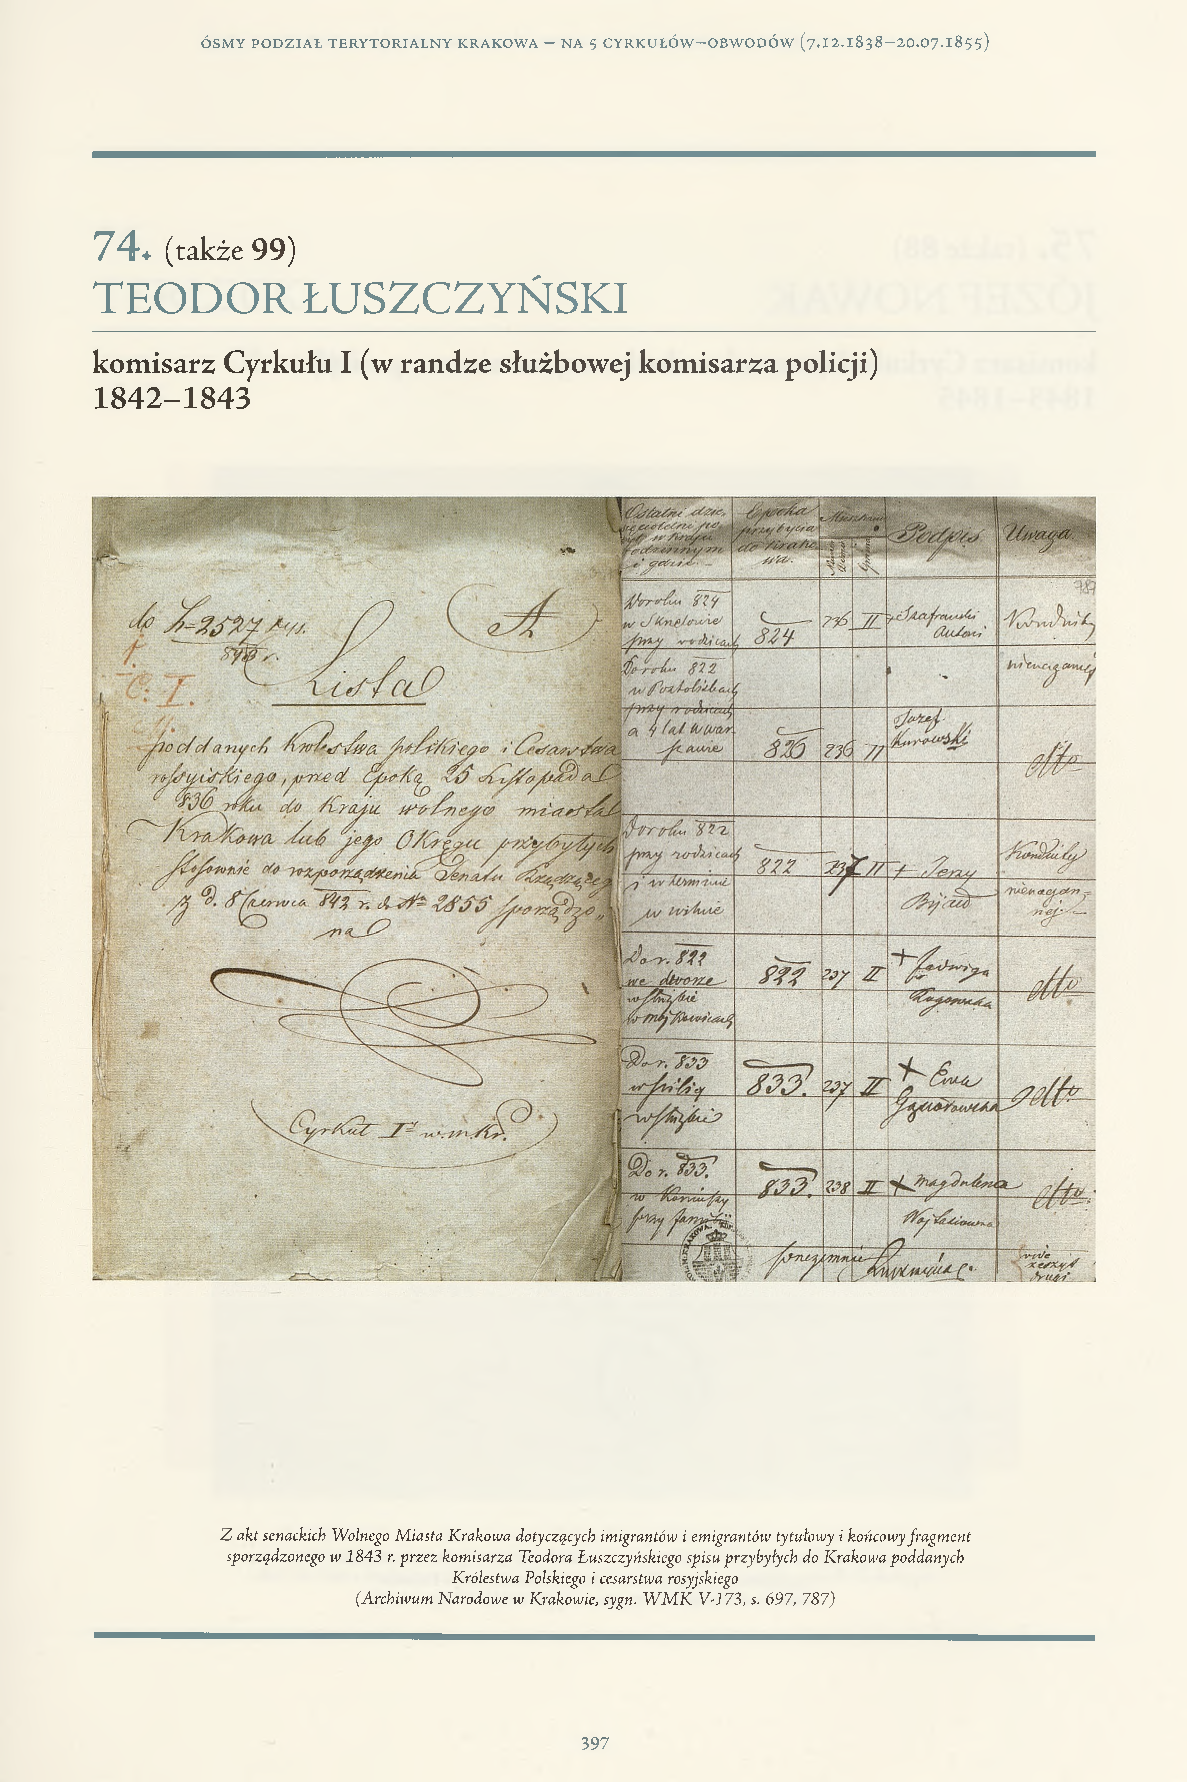 ÓSMY PODZIAŁ TERYTORIALNY KRAKOWA – NA 5 CYRKUŁÓW–OBWODÓW (7.12.1838–20.07.1855)
74. (także 99)
TEODOR ŁUSZCZYŃSKI
komisarz Cyrkułu I (w randze służbowej komisarza policji)
1842–1843
A
do L=2527
Lista
C. I.
poddanych Krolestwa polskiego i Cesarstwa
rossyiskiego, przed Epoką 25 Listopada
836 roku do Kraju wolnego miasta
Krakowa lub jego Okręgu przybyłych
stosownie do rozporządzenia Senatu Rządzącego
z d. 8 Czerwca 842 r. do No 2855 sporządzo„
na
Cyrkuł I w.m.Kr.
Epoka
przybycia
do Krako
wa.
Podpis
Uwaga
787
Do roku 824
przy rodzicach
824
236
II
Szafranski
Antoni
Konduity
nienaganney
Do roku 822
przy rodzicach
a 4 lat w War
szawie
826
236
II
Jozef
Kurowski
dtto
Do roku 822
przy rodzicach
w wilnie
822
237
II
+ Jerzy
Konduity
nienagan=
nej
Do r. 822
we dworze
w służbie
822
237
II
+ Jadwiga
dtto
Do r. 833
w służbie
833.
237
II
+ Ewa
dtto
Do r. 833.
833.
238
II
+ Magdalena
dtto
vide
zeszyt
drugi
Z akt senackich Wolnego Miasta Krakowa dotyczących imigrantów i emigrantów tytułowy i końcowy fragment
sporządzonego w 1843 r. przez komisarza Teodora Łuszczyńskiego spisu przybyłych do Krakowa poddanych
Królestwa Polskiego i cesarstwa rosyjskiego
(Archiwum Narodowe w Krakowie, sygn. WMK V-173, s. 697, 787)
397